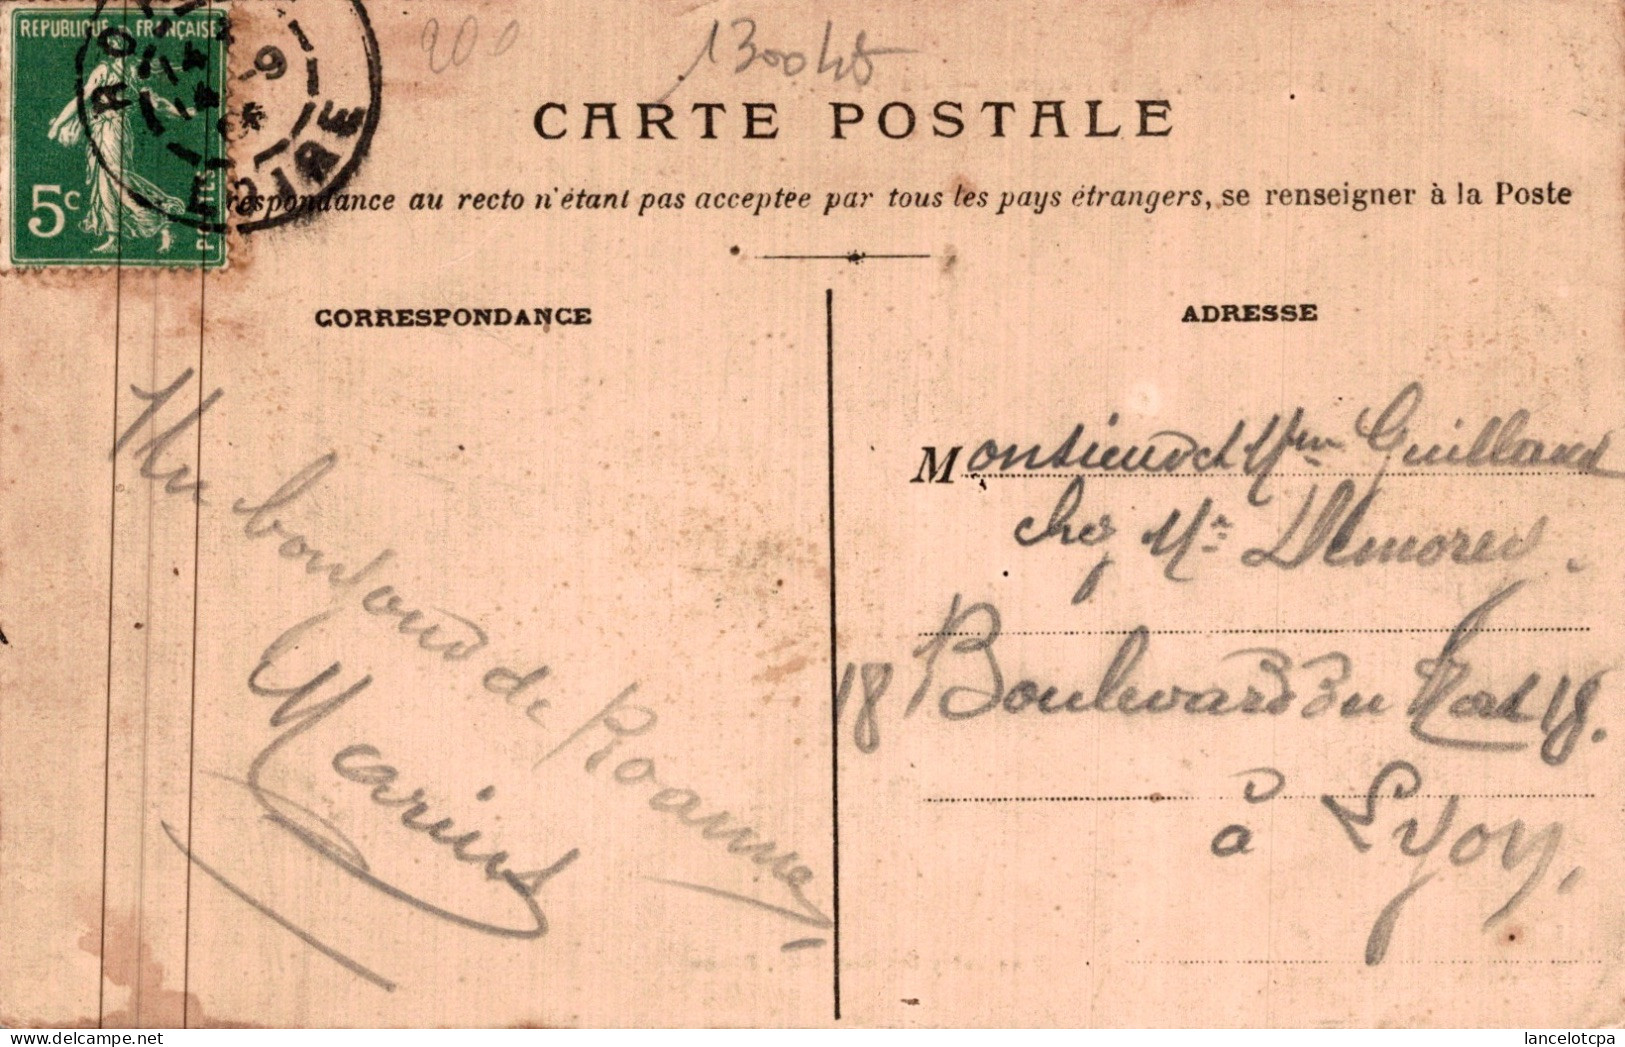 REPUBLIQUE FRANÇAISE
5c
POSTES
LOIRE
200
1300
CARTE POSTALE
respondance au recto n'étant pas acceptée par tous les pays étrangers, se renseigner à la Poste
CORRESPONDANCE
Un bonjour de Roanne,
Marius
ADRESSE
Monsieur et Mme Guillaud
chez Mr
18 Boulevard du Nord 18.
à Lyon,
lancelotcpa